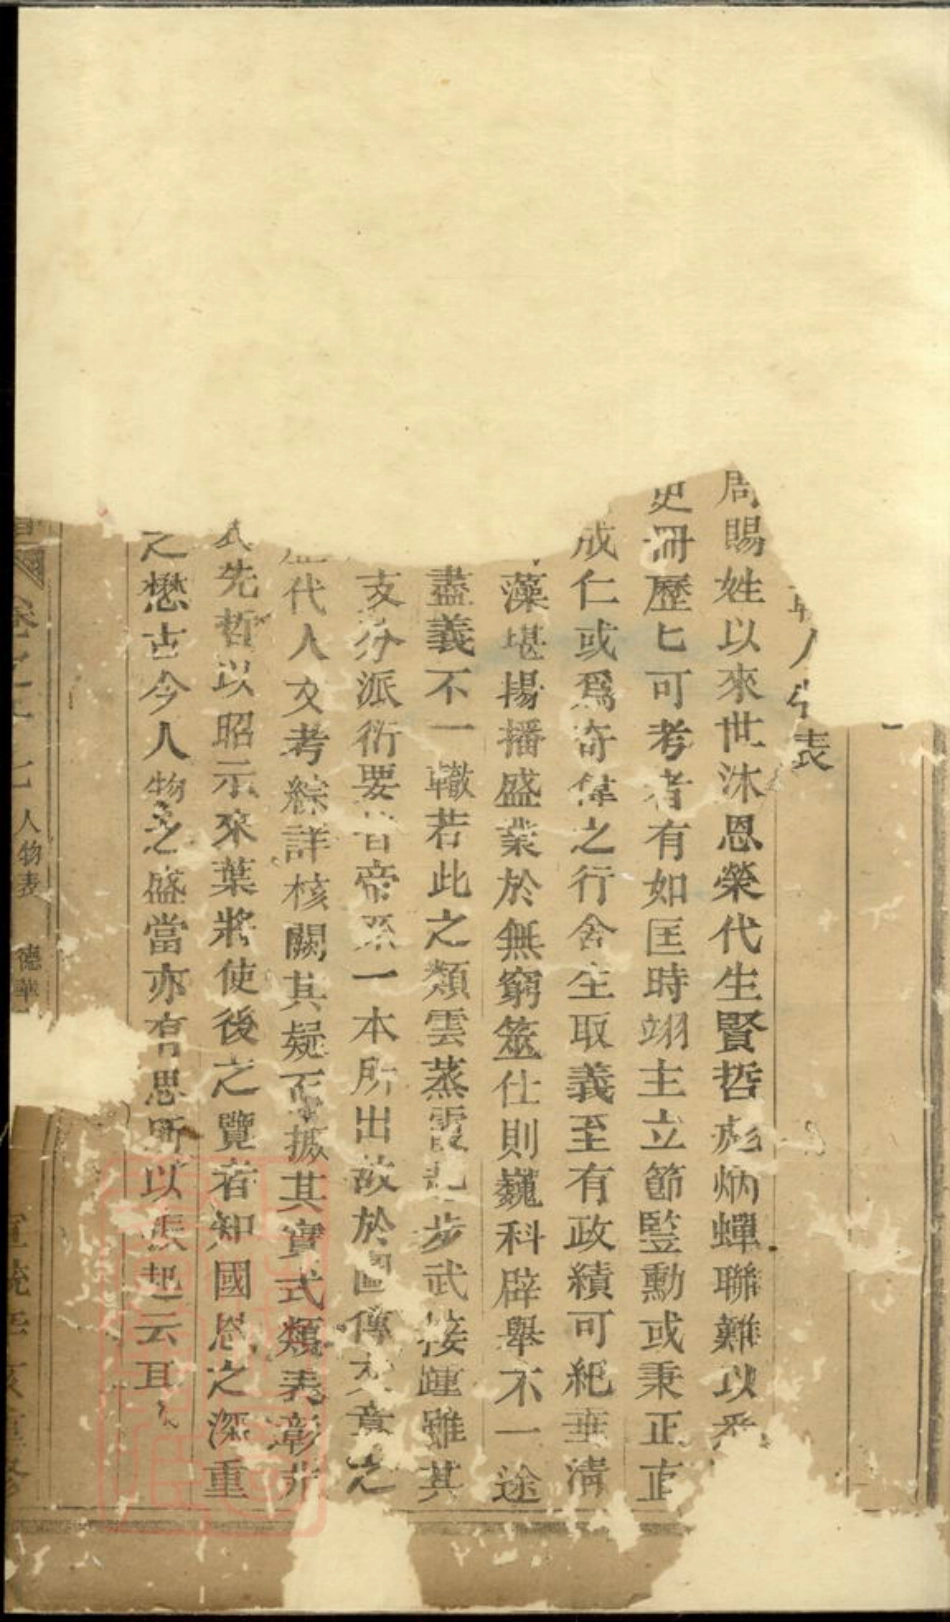 人
表
周賜姓以來世沐恩榮代生賢哲彪炳蟬聯難以悉
史冊歷匕可考者有如匡時翊主立節豎勳或秉正直
成仁或爲奇偉之行舍生取義至有政績可紀垂清
藻堪揚播盛業於無窮筮仕則巍科辟舉不一途
盡義不一轍若此之類雲蒸霞起步武接踵雖其
支分派衍要皆帝系一本所出故於圖傳文章之
歷代人文考綜詳核闕其疑不掩其實式類表彰
式先哲以昭示來葉將使後之覽者知國恩之深重
之懋古今人物之盛當亦有思所以振起云耳
卷之 七 人物表 德華
宣統 亥重修